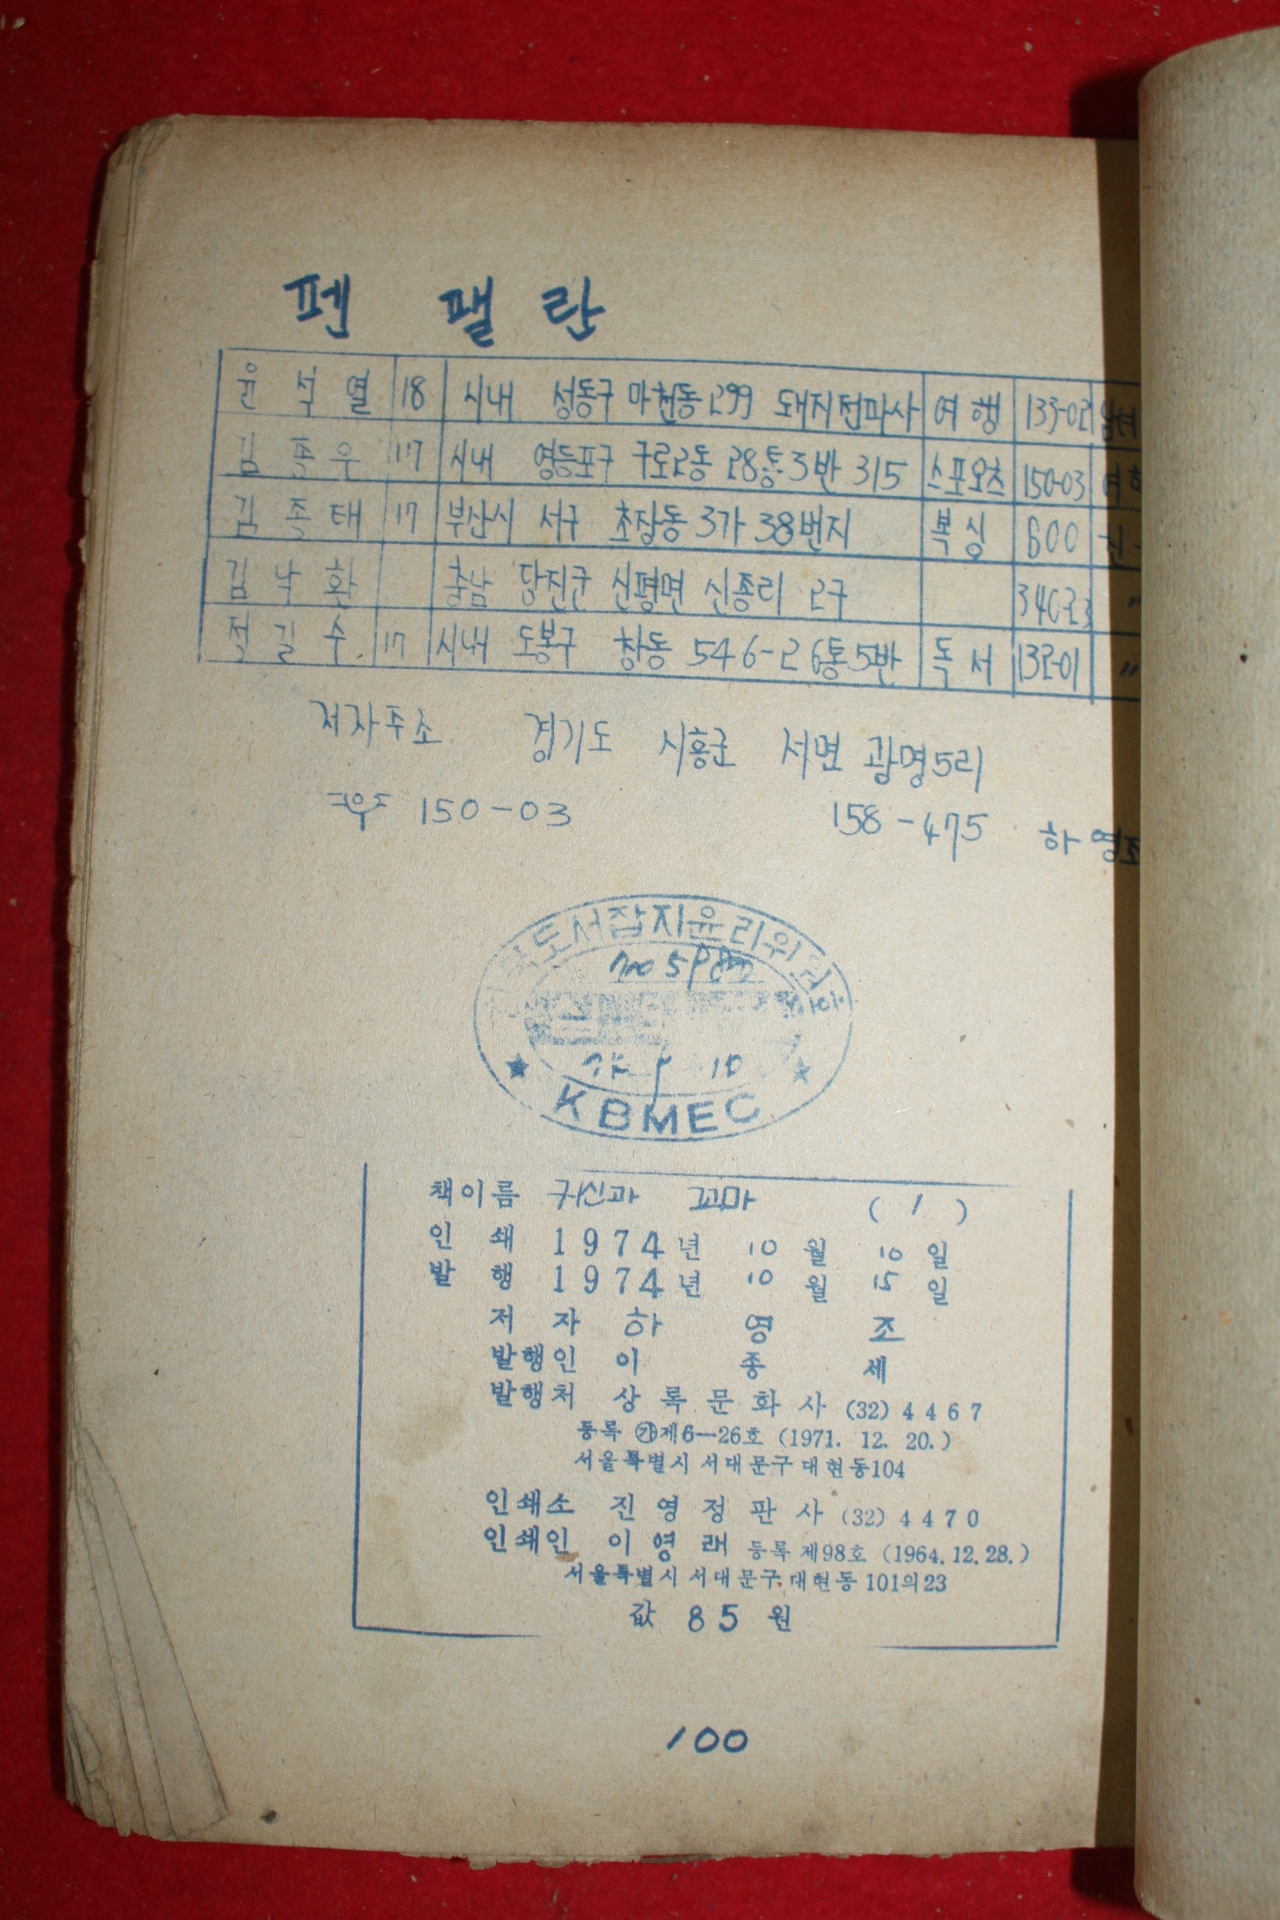 펜 팰란
윤석열 18 시내 성동구 마천동 299 돼지전파사 여행 133-02
김종우 17 시내 영등포구 구로2동 28통3반 315 스포오츠 150-03
김종태 17 부산시 서구 초장동 3가 38번지 복싱 600
김낙환 충남 당진군 신평면 신종리 2구 340-23 〃
정길수 17 시내 도봉구 창동 546-2 6통5반 독서 132-01 〃
저자주소 경기도 시흥군 서면 광명5리
우 150-03 158-475 하영조
도서잡지윤리위원회
KBMEC
책이름 귀신과 꼬마 (1)
인쇄 1974년 10월 10일
발행 1974년 10월 15일
저자 하영조
발행인 이종세
발행처 상록문화사 (32) 4467
등록 ㉮제6—26호 (1971. 12. 20.)
서울특별시 서대문구 대현동104
인쇄소 진영정판사 (32) 4470
인쇄인 이영래 등록 제98호 (1964. 12. 28.)
서울특별시 서대문구 대현동 101의23
값 85원
100